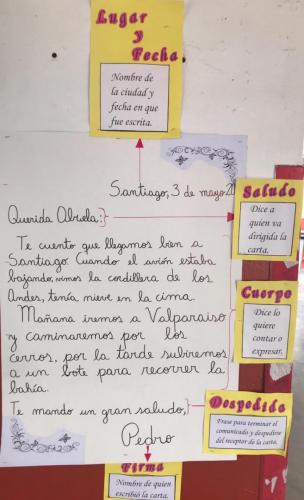 Lugar
y
Fecha
Nombre de
la ciudad y
fecha en que
fue escrita.
Santiago, 3 de mayo 20
Saludo
Dice a
quien va
dirigida la
carta.
Querida Abuela:
Te cuento que llegamos bien a
Santiago. Cuando el avión estaba
bajando, vimos la cordillera de los
Andes, tenía nieve en la cima.
Mañana iremos a Valparaíso
y caminaremos por los
cerros, por la tarde subiremos
a un bote para recorrer la
bahía.
Cuerpo
Dice lo
quiere
contar o
expresar.
Te mando un gran saludo,
Despedida
Frase para terminar el
comunicado y despedirse
del receptor de la carta.
Pedro
Firma
Nombre de quien
escribió la carta.